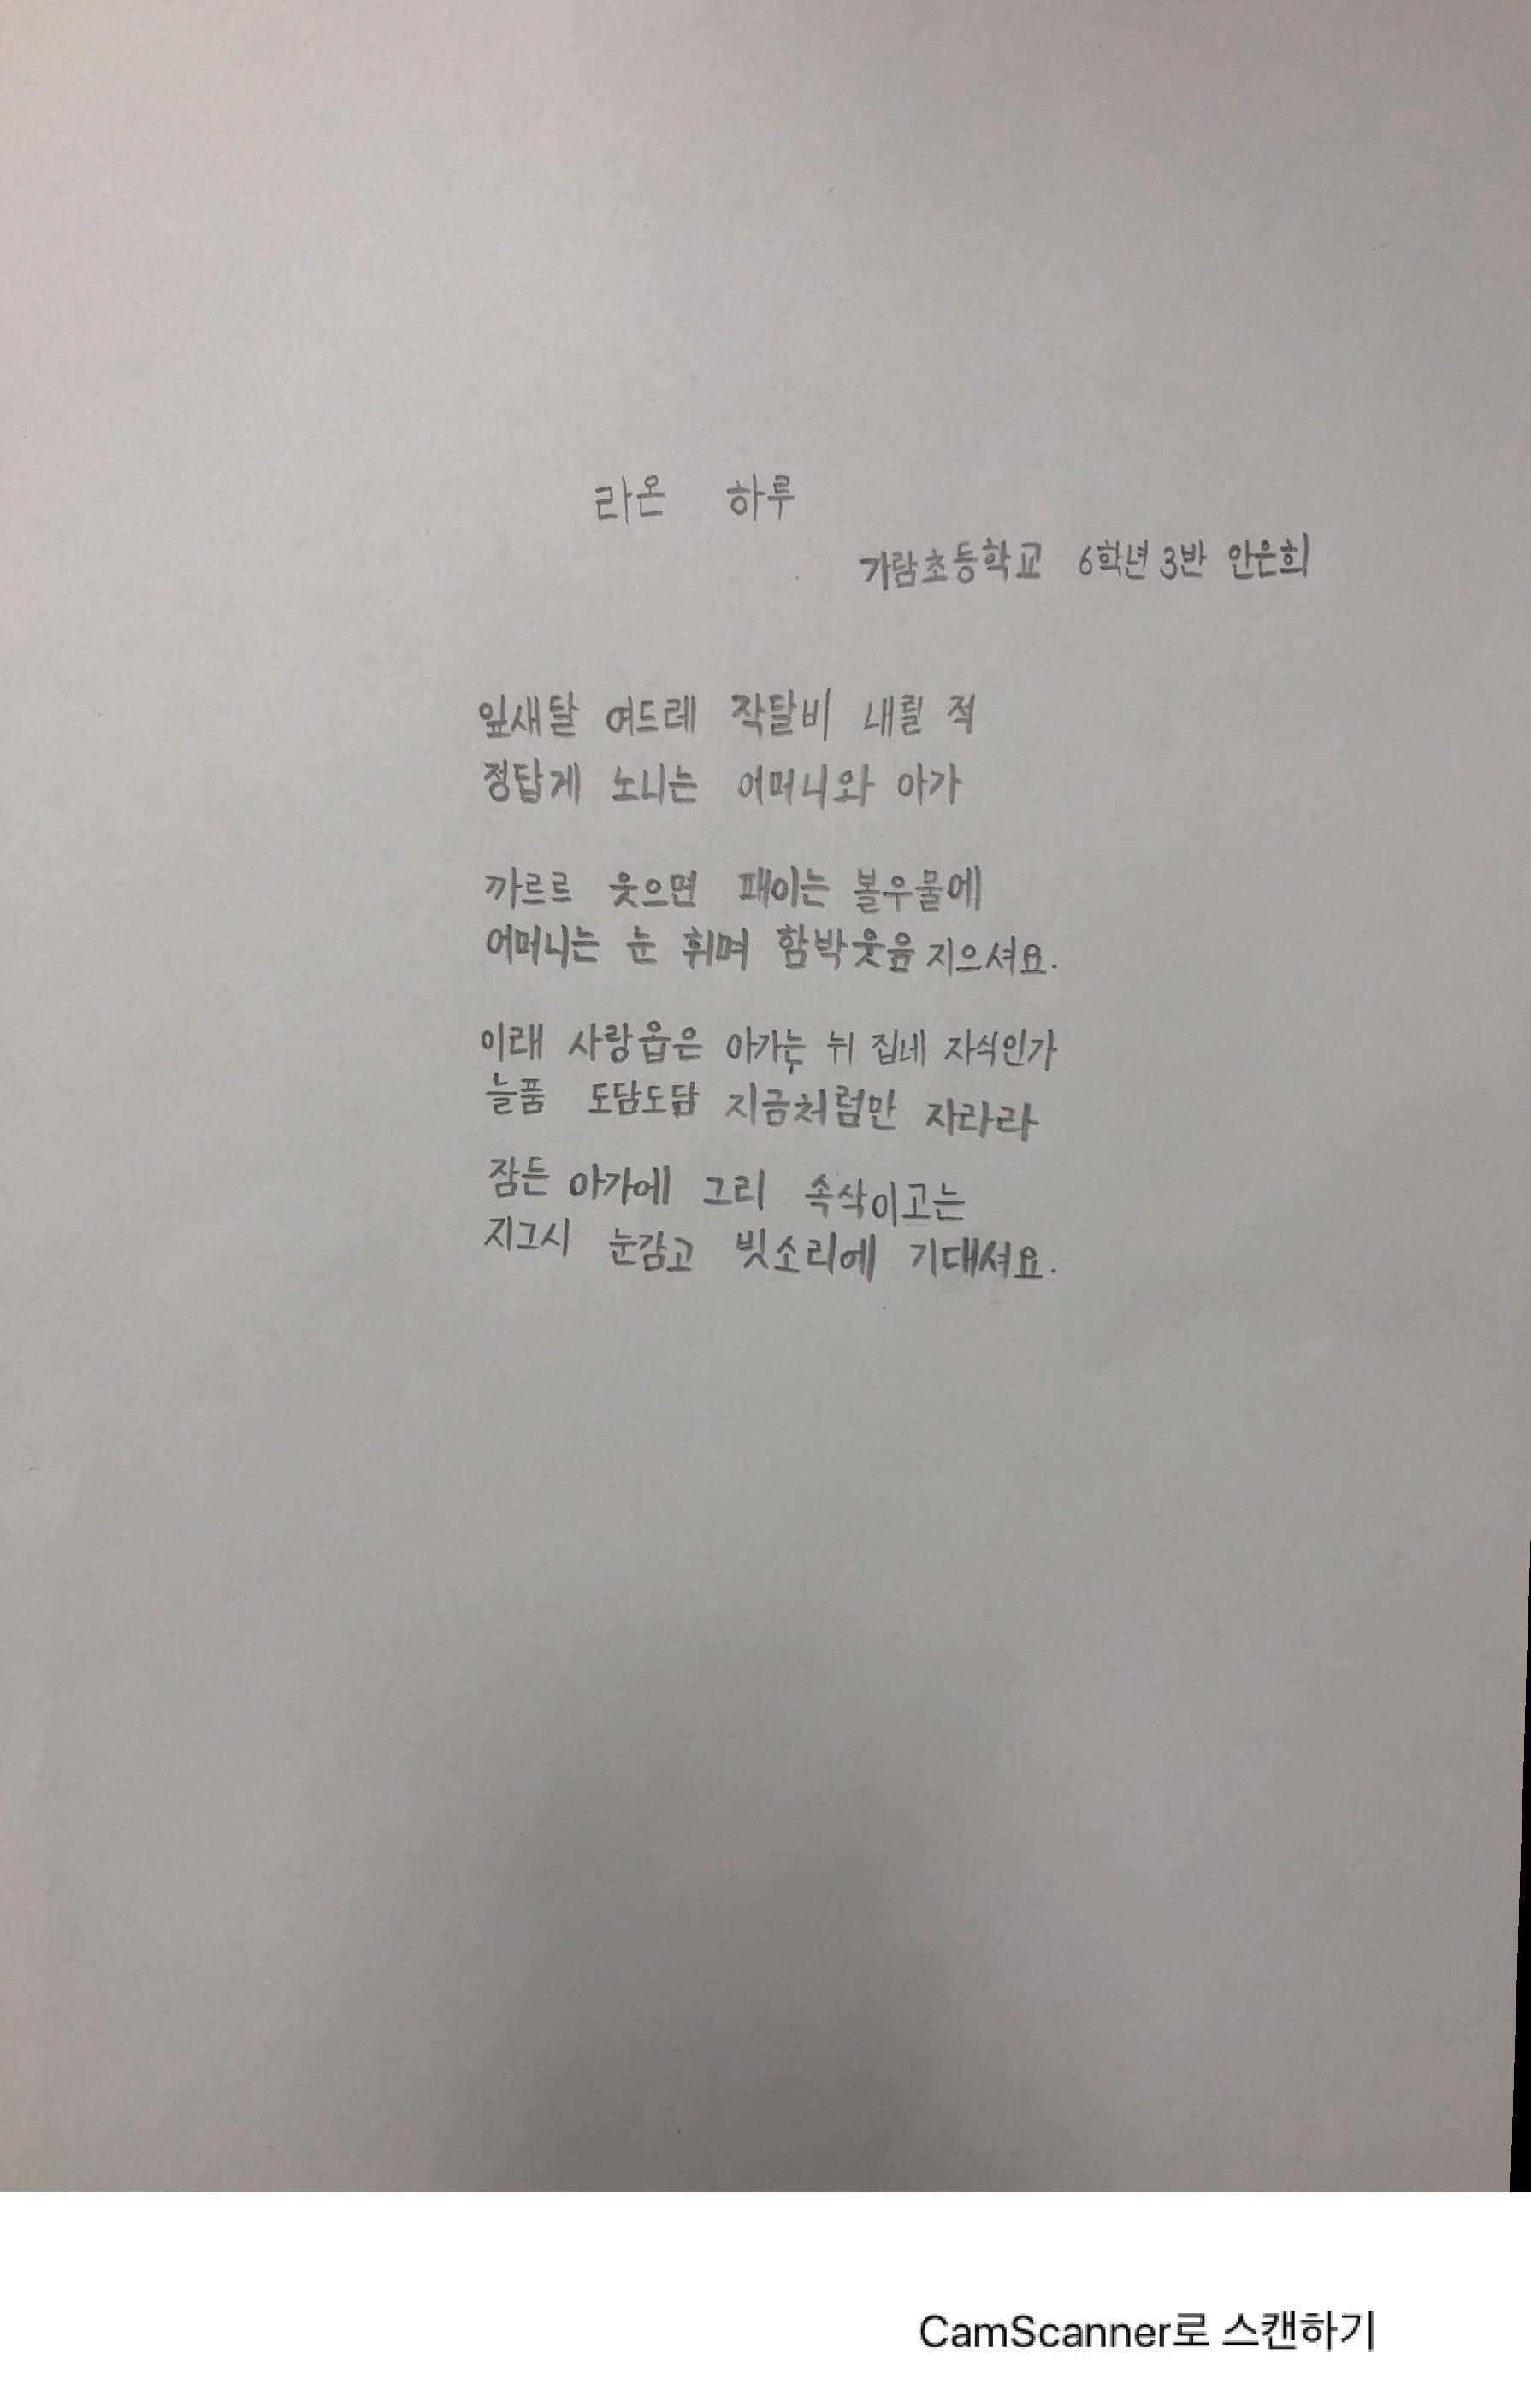 라온 하루
가람초등학교 6학년 3반 안은희
잎새달 여드레 작달비 내릴 적
정답게 노니는 어머니와 아가
까르르 웃으면 패이는 볼우물에
어머니는 눈 휘며 함박웃음 지으셔요.
이래 사랑옵은 아가는 뉘 집네 자식인가
늘품 도담도담 지금처럼만 자라라
잠든 아가에 그리 속삭이고는
지그시 눈감고 빗소리에 기대셔요.
CamScanner로 스캔하기